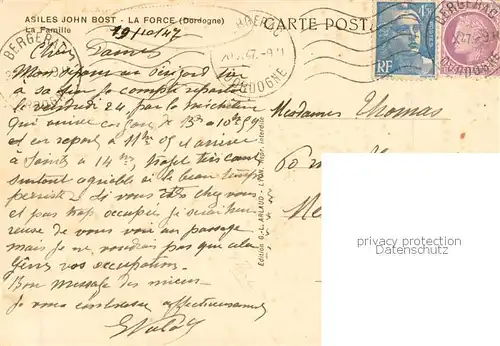 ASILES JOHN BOST - LA FORCE (Dordogne)
La Famille
CARTE POST
19/10/47
BERGERAC
DORDOGNE
4F50
RF
BERGERAC
DORDOGNE
Chère Dames
Mon séjour au Périgord tire
à sa fin je compte repartir
le vendredi 24 par la micheline
qui arrive
et en repart à 11h 05 et arrive
à Saintes à 14h, trajet très court
surtout agréable si le beau temps
persiste. Si vous êtes chez vous
et pas trop occupées je serai heu
reuse de vous voir au passage
mais je ne voudrai pas que cela
gêne vos occupations.
Bon message des miens
Je vous embrasse affectueusement
Mesdames Thomas
60
Edition G.-L. ARLAUD - LYON. Repr. interdite
privacy protection
Datenschutz